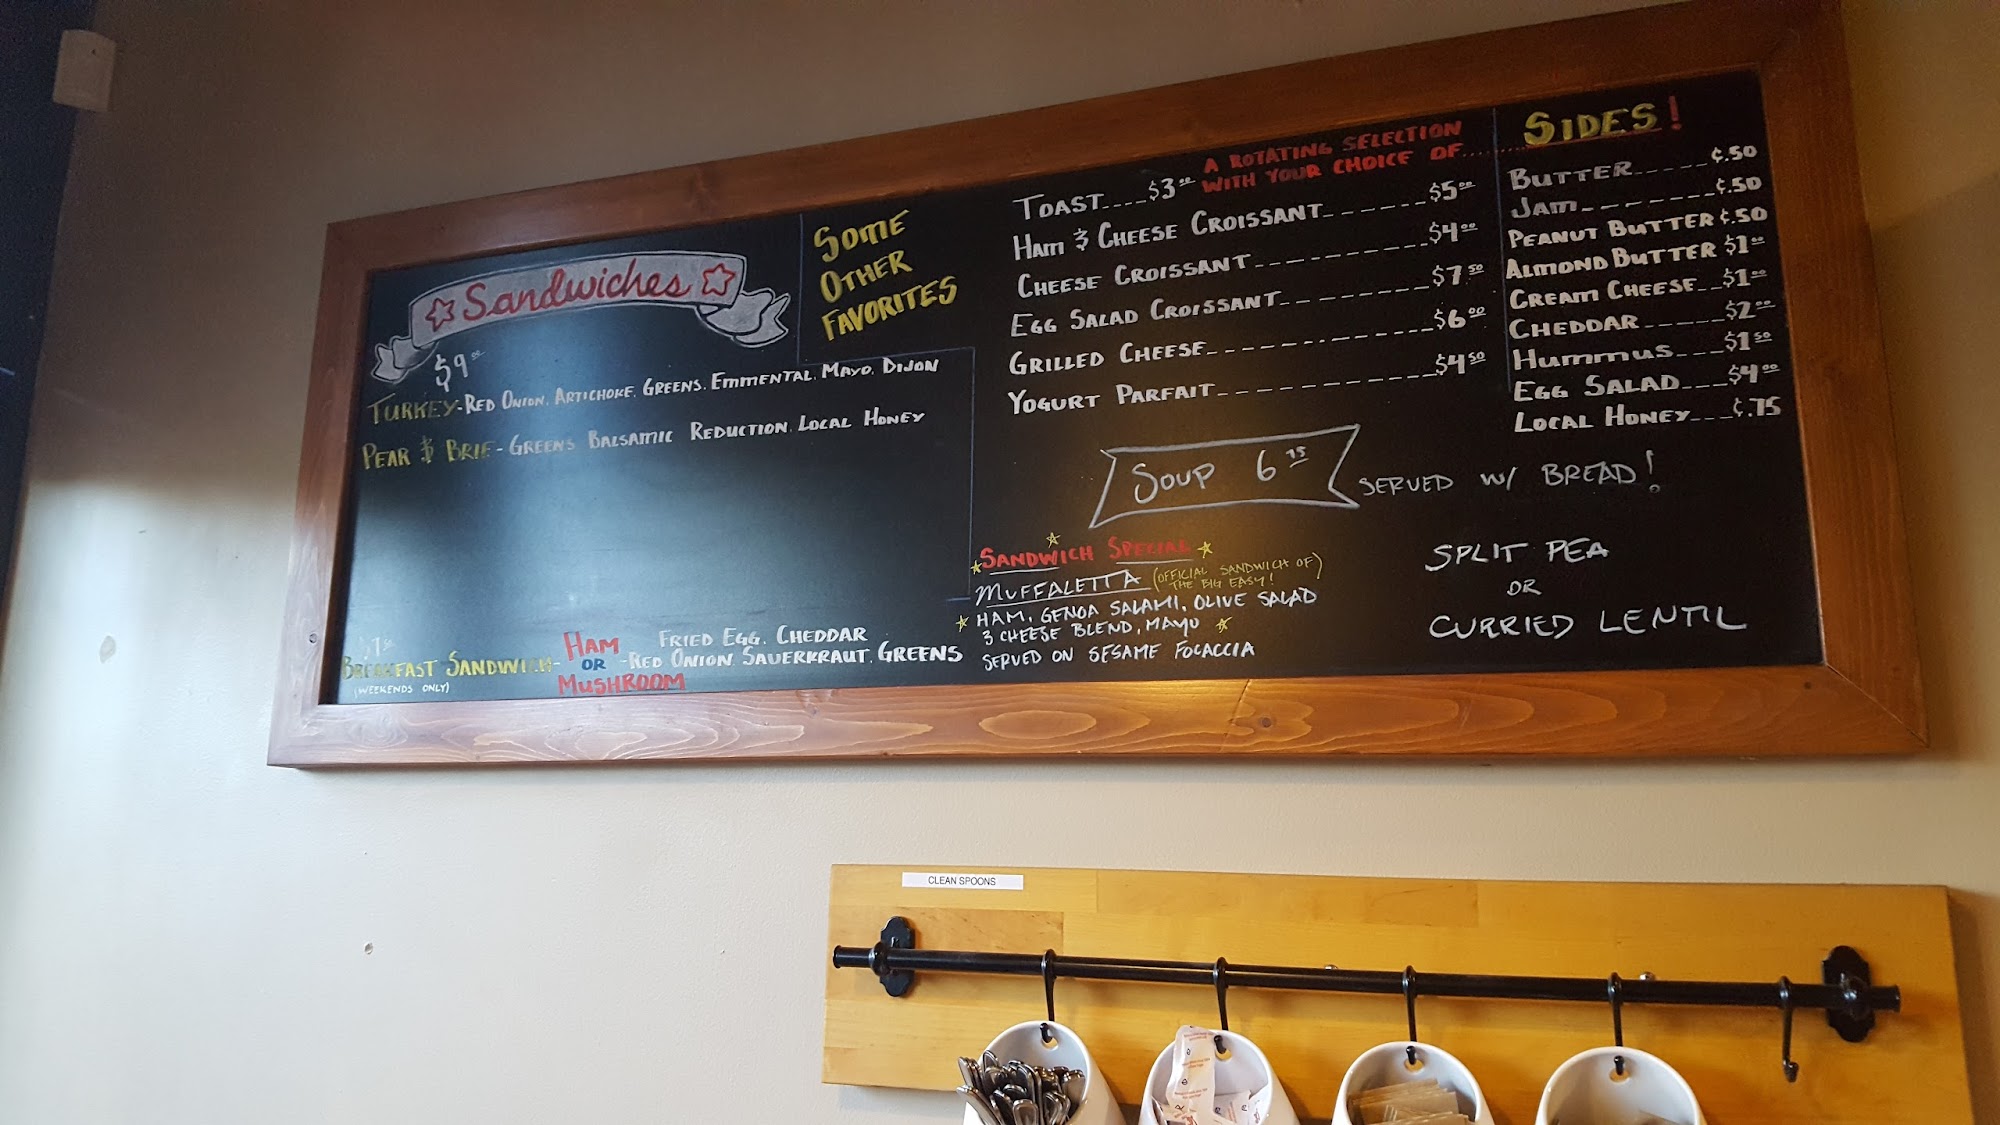 Sandwiches
$9.00
TURKEY-RED ONION. ARTICHOKE. GREENS. EMMENTAL. MAYO. DIJON
PEAR & BRIE - GREENS. BALSAMIC REDUCTION. LOCAL HONEY
BREAKFAST SANDWICH-
(WEEKENDS ONLY)
HAM
OR
MUSHROOM
FRIED EGG. CHEDDAR
-RED ONION. SAUERKRAUT. GREENS
SOME
OTHER
FAVORITES
TOAST....$3.00
A ROTATING SELECTION
WITH YOUR CHOICE OF........
HAM & CHEESE CROISSANT------$5.00
CHEESE CROISSANT----------$4.00
EGG SALAD CROISSANT---------$7.50
GRILLED CHEESE-------------$6.00
YOGURT PARFAIT-------------$4.50
SOUP 6.75
SERVED W/ BREAD!
SPLIT PEA
OR
CURRIED LENTIL
SANDWICH SPECIAL
MUFFALETTA
(OFFICIAL SANDWICH OF
THE BIG EASY!)
HAM, GENOA SALAMI, OLIVE SALAD
3 CHEESE BLEND, MAYO
SERVED ON SESAME FOCACCIA
SIDES!
BUTTER-----¢.50
JAM-------¢.50
PEANUT BUTTER ¢.50
ALMOND BUTTER $1.00
CREAM CHEESE--$1.00
CHEDDAR-----$2.00
HUMMUS---$1.50
EGG SALAD---$4.00
LOCAL HONEY---¢.75
CLEAN SPOONS